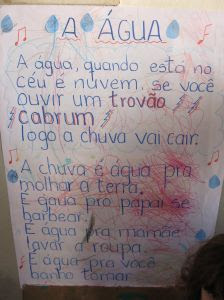 A ÁGUA
A água, quando está no
céu é nuvem, se você
ouvir um trovão
cabrum
logo a chuva vai cair.
A chuva é água pra
molhar a terra.
E água pro papai se
barbear.
E água pra mamãe
lavar a roupa.
E água pra você
banho tomar